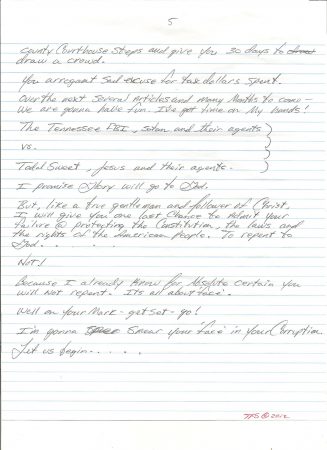 5
County Courthouse Steps and give you 30 days to
draw a crowd.
You arrogant Sad excuse for tax dollars spent.
Over the next Several Articles and many Months to come -
We are gonna have fun. I've got time on My hands!
The Tennessee FBI, satan and their agents
vs.
Todd Sweet, Jesus and their agents.
I promise Glory will go to God.
But, like a true gentleman and follower of Christ.
I, will give you one last Chance to Admit Your
failure @ protecting the Constitution, the laws and
the rights of the American People. To repent to
God. . . . .
Not!
Because I already Know for Absolute certain you
will Not repent. Its all about 'face'.
Well on Your Mark - get Set - go!
I'm gonna Smear your 'face' in Your Corruption.
Let us begin. . . . .
TFS © 2012